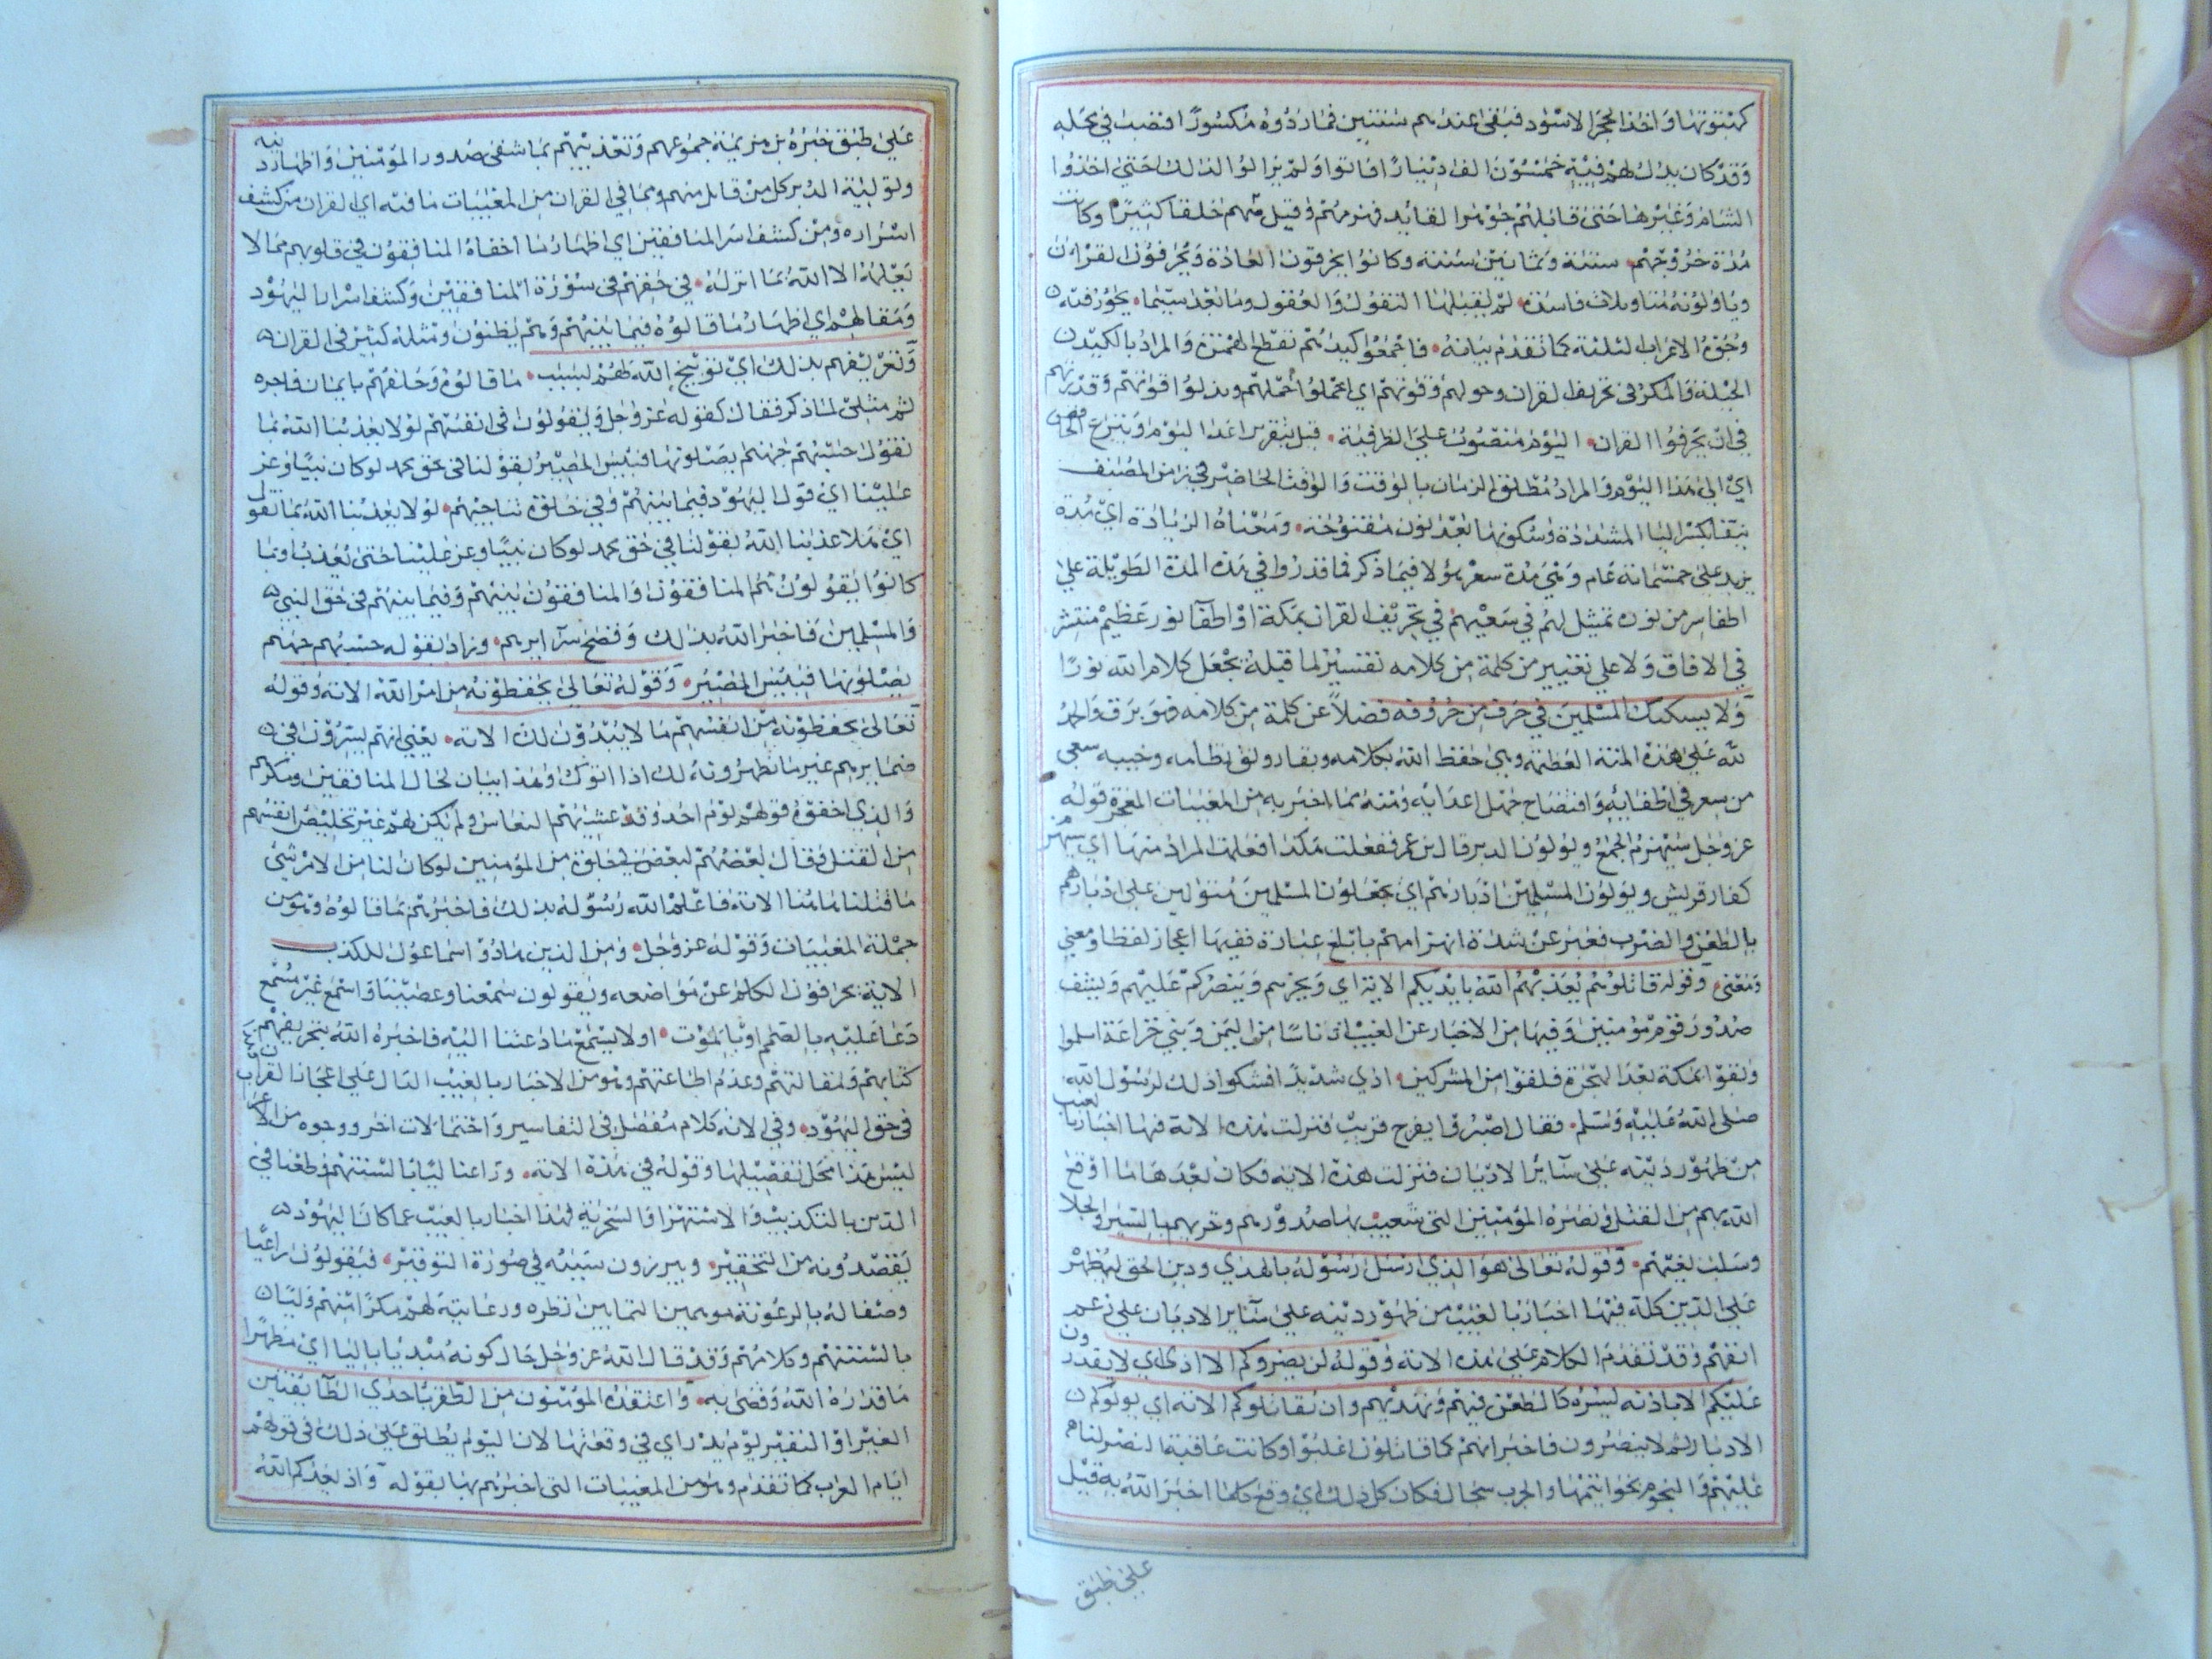 كهنوتها واخذ الحجر الاسود فبقى عندهم سنتين فما ردوه مكسورا فنصب في محله
وقد كان بدل لهم فيه خمسون الف دينار فابوا ولم يزالوا الذلك حتى اخذوا
الشام وغيرها حتى قاتلهم جوهر القايد فهزمهم وقتل منهم خلقا كثيرا وكانت
مدة خروجهم ستة وثمانين سنة وكانوا يخرقون العادة ويحرفون القران
وياولونه بتاويلات فاسدة لم يقبلها العقول وما بعد سيما يجوز فيه
وجوه الاعراب الثلثة كما تقدم بيانه فاجمعوا كيدهم بقطع الهمزة والمراد بالكيد
الحيلة والمكر في تحريف القران وحولهم وقوتهم اي اعملوا حملهم وبذلوا قوتهم وقدرتهم
في ان يحرفوا القران اليوم منصوب على الظرفية قبل
اي الى هذا اليوم والمراد مطلق الزمان بالوقت والوقت الحاضر في زمان المصنف
نيفا بكسر اليا المشددة وسكونها بعد نون مفتوحة ومعناه الزيادة اي مدة
يزيد على خمسمائة عام وهي مدة سعي هؤلا فيما ذكر فما قدروا في هذه المدة الطويلة على
اطفا من نوره تمثيل لهم في سعيهم في تحريف القران بمكة او اطفآ نور عظيم منتشر
في الافاق ولا على تغيير من كلمة من كلامه تفسير لما قبله بجعل كلام الله نورا
ولا تشكيك المسلمين في حرف من حروفه فضلا عن كلمة من كلامه
لله على هذه المنة العظيمة وهي حفظ الله بكلامه وبقا رونق نظامه وخيبة سعي
من سعى في اطفايه وافتضاح جهل اعدايه ومنه مما اخبر به من المغيبات المعجزة قوله
عز وجل سيهزم الجمع ويولون الدبر قال بن عمر ففعلت هكذا فعلهم المراد منها اي سيهزم
كفار قريش ويولون المسلمين ادبارهم اي يجعلون المسلمين متولين على ادبارهم
بالطعن والضرب فعبر عن شدة انهزامهم بابلغ عبارة ففيها اعجاز لفظا ومعني
ومعنى وقوله قاتلوهم يعذبهم الله بايديكم الاية اي ويخزهم وينصركم عليهم ويشف
صدور قوم مؤمنين وفيها من الاخبار عن الغيب ان ناسا من اليمن وبني خزاعة اسلموا
وبقوا بمكة بعد الهجرة فلقوا من المشركين اذي شديدا فشكوا ذلك لرسول الله
صلى الله عليه وسلم فقال اصبروا فالفرج قريب فنزلت هذه الاية فيها اخبار بالغيب
من ظهور دينه على سآير الاديان فنزلت هذه الايه فكان بعدها ما اوقع
الله بهم من القتل ونصرة المؤمنين التي شفيت بها صدورهم وخزيهم بالسير والجلا
وسلب نعمتهم وقوله تعالى هو الذي ارسل رسوله بالهدي ودين الحق ليظهر
على الدين كله فيها اخبار بالغيب من ظهور دينه على سآير الاديان على زعم
انفهم وقد تقدم الكلام على هذه الاية وقوله لن يضروكم الا اذى اي لا يقدرون
عليكم الا باذية يسيرة كالطعن فيهم وتهديهم وان يقاتلوكم الاية اي يولوكم
الادبار ثم لا ينصرون فاخبر انهم كما قاتلوا غلبوا وكانت عاقبة النصر لنا
عليهم والحرب سجال فكان كل ذلك اي وقع كلما اخبر الله به قبل
على طبق
على طبق خبره من هزيمة جموعهم وتعذيبهم بما شفى صدور المؤمنين واظهار دينه
وتولية الدبر كل من قاتل منهم ومما في القران من المغيبات ما فيه اي القران من كشف
اسراره ومن كشف اسر المنافقين اي اظهار ما اخفاه المنافقون في قلوبهم مما لا
يعلمه الا الله بما انزله في حقهم في سورة المنافقين وكشف اسرار اليهود
ومقالهم اي اظهار ما قالوه فيما بينهم وهم يظنون ومثله كثير في القران
وتقريعهم بذلك اي توبيخ الله لهم بسبب ما قالوه وحلفهم بايمان فاجره
ثم مثل لما ذكر فقال كقوله عز وجل ويقولون في انفسهم لولا يعذبنا الله بما
نقول حسبهم جهنم يصلونها فبيس المصير بقولنا في حق محمد لو كان نبيا وعز
علينا اي قول اليهود فيما بينهم وفي خلوة تناجيهم لولا يعذبنا الله بما نقول
اي هلا عذبنا الله بقولنا في حق محمد لو كان نبيا وعز علينا حتى يعذبنا وبما
كانوا يقولون هم المنافقون والمنافقون بينهم وفيما بينهم في حق النبي
والمسلمين فاخبر الله بذلك وفضح سرآيرهم وزاد بقوله حسبهم جهنم
يصلونها فبيس المصير وقوله تعالى يحفظونه من امر الله الاية وقوله
تعالى يخفون في انفسهم ما لا يبدون لك الاية يعني انهم يسرون في
ضمايرهم غير ما تظهرونه لك اذا اتوك وهذا بيان لحال المنافقين ومكرهم
والذي اخفوه قولهم يوم احد وقد غشيهم النعاس ولم يكن لهم غير تخليص انفسهم
من القتل فقال بعضهم لبعض في خلوة من المؤمنين لو كان لنا من الامر شئ
ما قتلنا هاهنا الاية فاعلم الله رسوله بذلك فاخبرهم بما قالوه وهو من
جملة المغيبات وقوله عز وجل ومن الذين هادوا سماعون للكذب
الاية يحرفون الكلم عن مواضعه ويقولون سمعنا وعصينا واسمع غير مسمع
دعا عليه بالصمم او بالموت او لا يسمع ما دعتنا اليه فاخبره الله بتحريفهم
كتابهم ومقالتهم وعدم اطاعتهم وهو من الاخبار بالغيب الدال على اعجاز القران
في حق اليهود وفي الاية كلام مفصل في التفاسير واحتمالات اخر ووجوه من الاعراب
ليس هذا محل تفصيلها وقوله في هذه الاية وراعنا ليا بالسنتهم وطعنا في
الدين بالتكذيب والاستهزا والسخرية لهذا اخبار بالغيب عما كان اليهود
يقصدونه من التحقير ويبرزون سيئه في صورة التوقير فيقولون راعنا
وصفا له بالرعونة موهمين انتظاره ورعايته لهم مكرا منهم وليا
بالسنتهم وكلامهم وقد قال الله عز وجل حال كونه مبديا باليا اي مظهرا
ما قدره الله وقضى به واعتقده المؤمنون من الظفر باحدي الطآيفتين
العير او النفير يوم بدر اي في وقعتها لان اليوم يطلق على ذلك في قولهم
ايام العرب كما تقدم وهو من المغيبات التي اخبرهم بها بقوله واذ يعدكم الله